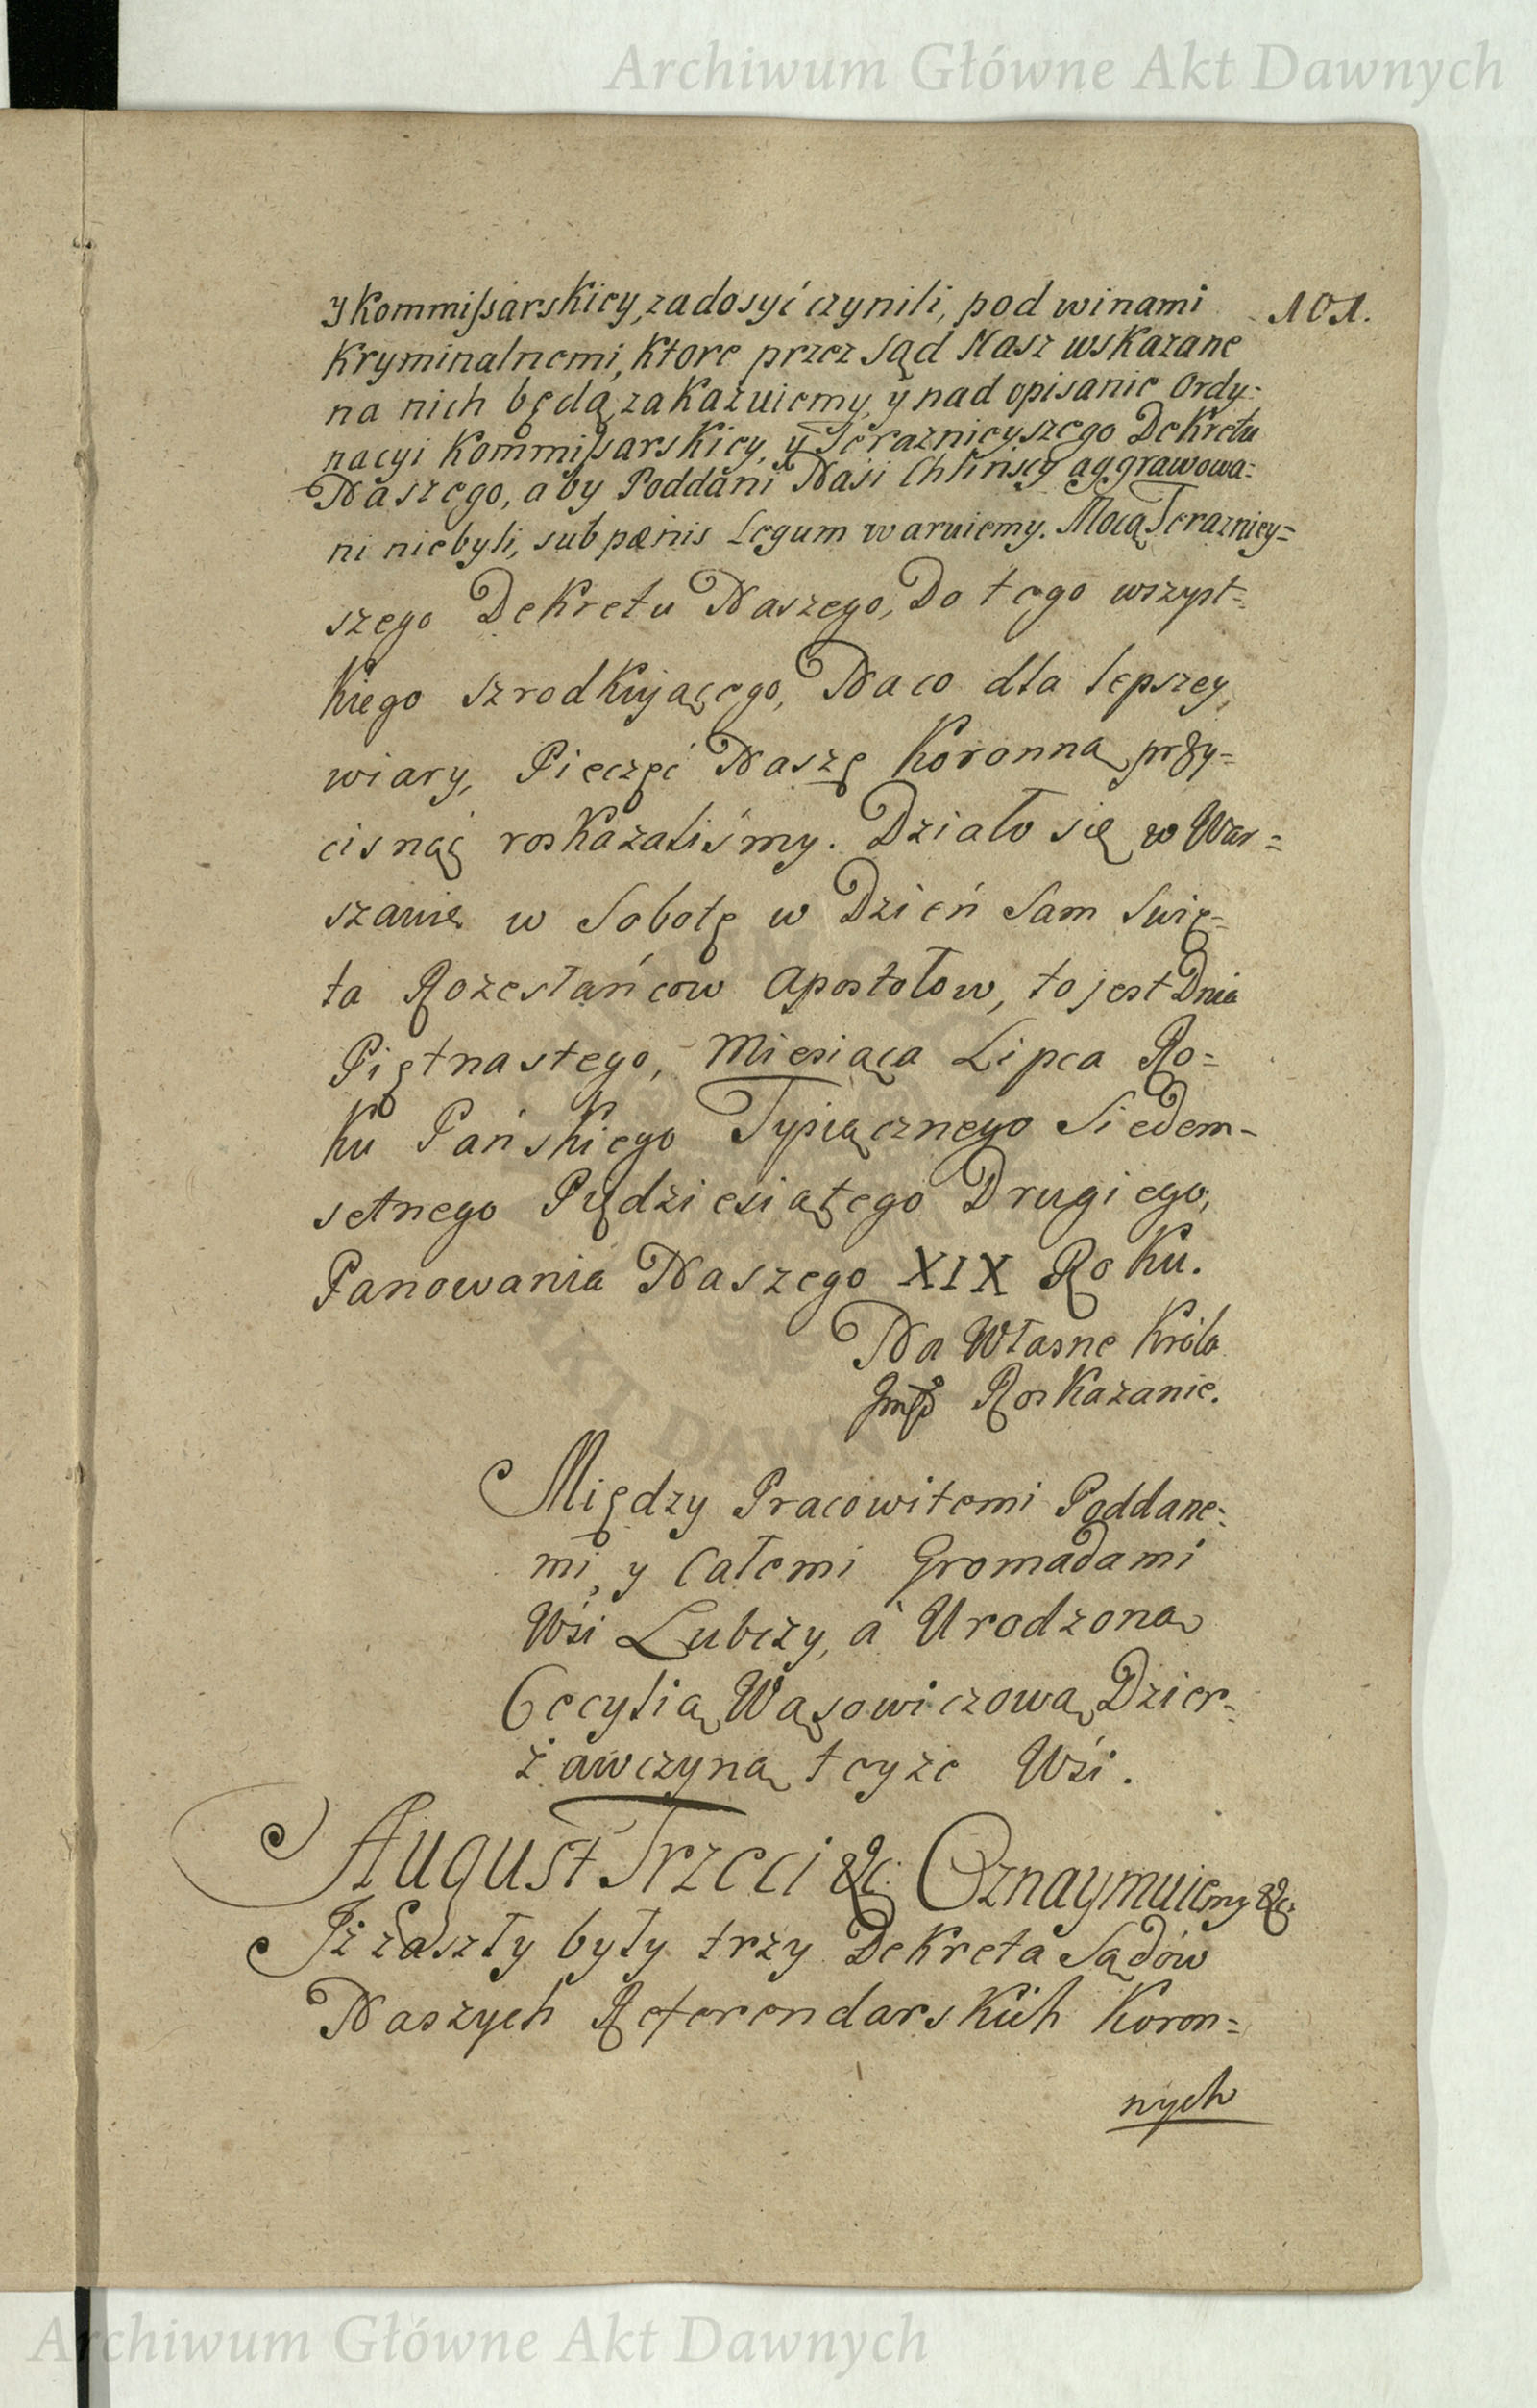 Archiwum Główne Akt Dawnych
101.
y Kommißarskiey, zadosyć czynili, pod winami
Kryminalnemi, Ktore przez Sąd Nasz wskazane
na nich będą, zakazuiemy, ÿ nad opisanie Ordy=
nacyi Kommißarskiey, ÿ Teraznieyszego Dekretu
Naszego, aby Poddani Nasi Chlinscy aggrawowa=
ni niebyli, sub pœnis Legum waruiemy. Mocą Terazniey=
szego Dekretu Naszego, Do tego wszyst=
Kiego szrodkującego, Na co dla lepszey
wiary, Pieczęć Naszę Koronną przy=
cisnąć roskazaliśmy. Działo się w War=
szawie w Sobotę w Dzień Sam Swię=
ta Rozesłańcow Apostołow, to jest Dnia
Piętnastego, Miesiąca Lipca Ro=
Ku Pańskiego Tysiącznego Siedem=
setnego Pędziesiątego Drugiego,
Panowania Naszego XIX Roku.
Na Własne Króla
Jmści Roskazanie.
Między Pracowitemi Poddane=
mi, y Całemi Gromadami
Wśi Lubczy, á Urodzoną
Cecylią Wąsowiczową Dzier=
żawczyną teyże Wśi.
August Trzeci &c. Oznaymuiemy &c.
Iż zaszły były trzy Dekreta Sądów
Naszych Referendarskich Koron=
nych
Archiwum Główne Akt Dawnych